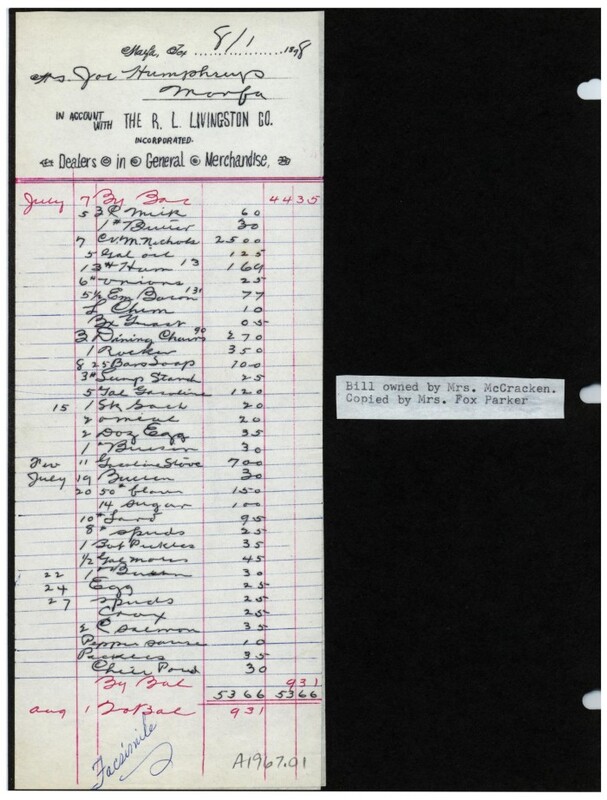 Marfa, Tex 8/1 1898
Mrs Joe Humphreys
Marfa
IN ACCOUNT WITH THE R. L. LIVINGSTON CO.
INCORPORATED.
Dealers in General Merchandise,
July 7 By Bal 4435
5 3 C Milk 60
1 # Butter 30
7 C.V.M. Nichols 2500
5 Gal oil 125
13# Ham 13 169
6# onions 25
5½ Em Bacon 77
Chem 10
Bx Yeast 05
3 Dining Chairs 90 270
1 Rocker 350
8 25 Bars Soap 100
3# Lump Starch 25
5 Gal Gasoline 120
15 1 Sk Salt 20
20
2 Doz Egg 35
1 # Butter 30
11 Gasoline Stove 700
July 19 Butter 30
20 50# flour 150
14 sugar 100
10# Lard 95
8# spuds 25
1 Bot Pickles 35
½ Gal molas 45
22 1 # Butter 30
24 Egg 25
27 spuds 25
25
2 C salmon 35
Pepper sauce 10
35
30
By Bal 931
5366 5366
aug 1 To Bal 931
Facsimile
A1967.01
Bill owned by Mrs. McCracken.
Copied by Mrs. Fox Parker